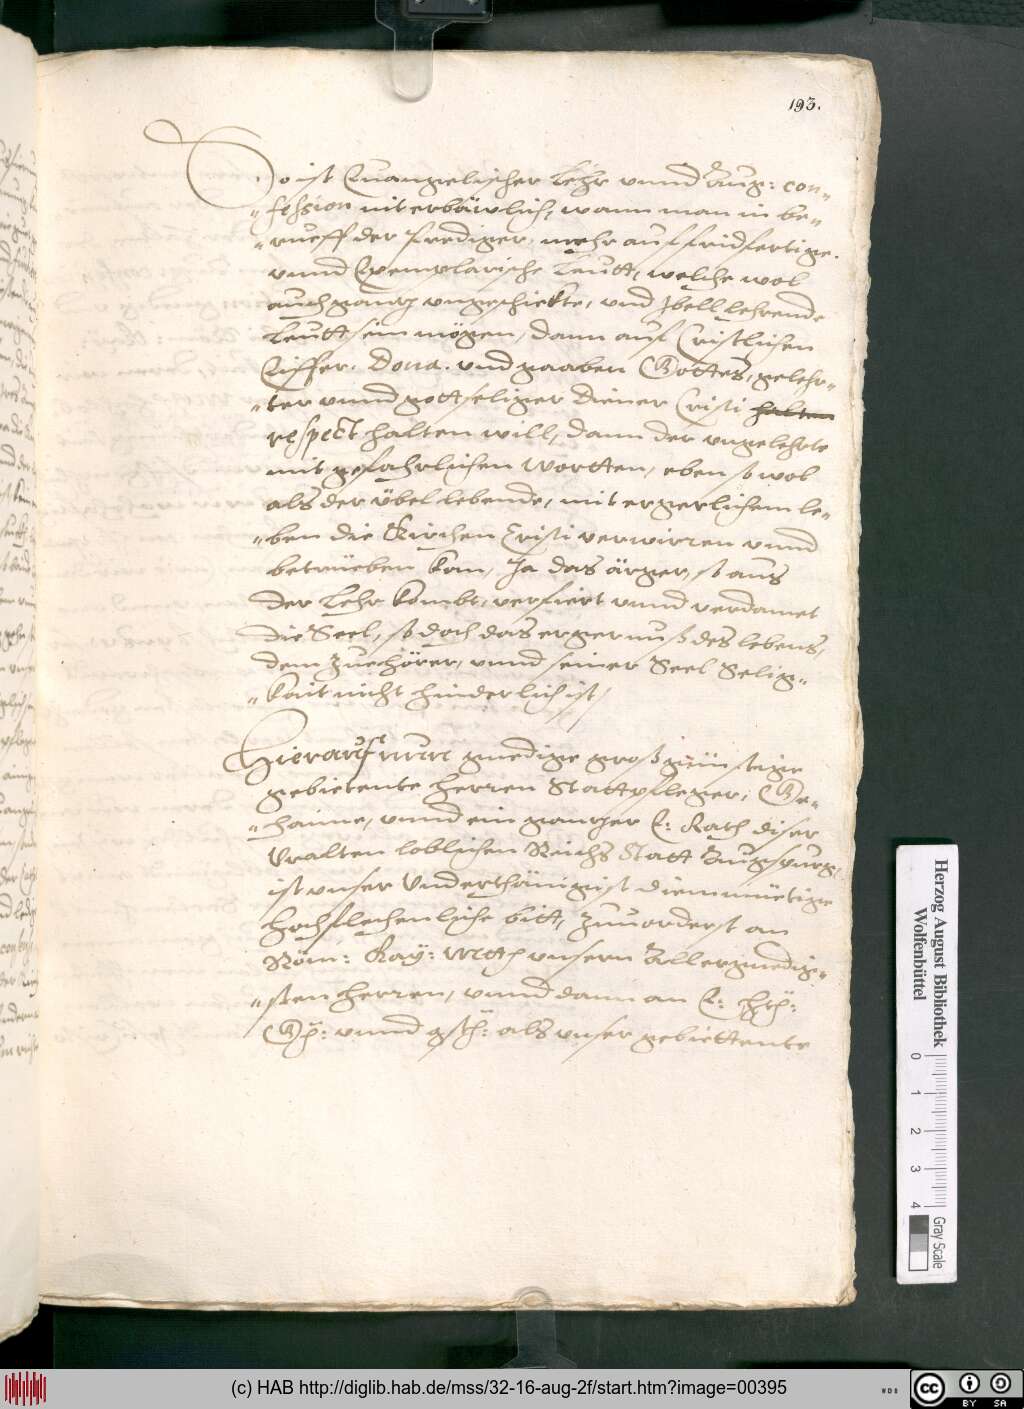 193.
So ist Euangelischer Lehr vnnd Aug: con-
-fession nit erbäwlich, wann man in be-
-rueff der Prediger, mehr auf fridfertige
vnnd Exemplarische Leutt, welche wol
auch gantz vngeschickte, vnd Ibell lehrende
Leutt sein mögen, dann auf Cristlichen
Eiffer, Dona. vnd gaaben Gottes, gelehr-
-ter vnnd gottseliger diener Cristi halten
respect halten will, dann der vngelehrte
mit gefahrlichen wortten, eben so wol
als der übel lebende, mit ergerlichem le-
-ben die Kirchen Cristi verwirren vnnd
betrüeben kan, Ja das ärger, so aus
der Lehr kombt, verfiert vnnd verdamet
die Seel, so doch das ergernuß des lebens,
dem Zuehörer, vnnd seiner Seel Selig-
-kait nicht hinderlich ist,
Hierauf nun gnedige großgünstige
gebietente herren Stattpfleger, Ge-
-haime, vnnd ein gantzer E: Rath diser
Vralten loblichen Reichs Statt Augspurg,
ist vnser Vnderthänigist diemmüetige
hochflechenliche bitt, Zuuorderst an
Röm: Kay: Mtt vnsern Allergnedig-
-sten herren, vnnd dann an E:
vnnd als vnser gebiettente
Herzog August Bibliothek
Wolfenbüttel
0 1 2 3 4
Gray Scale
(c) HAB http://diglib.hab.de/mss/32-16-aug-2f/start.htm?image=00395
WDB
cc BY SA